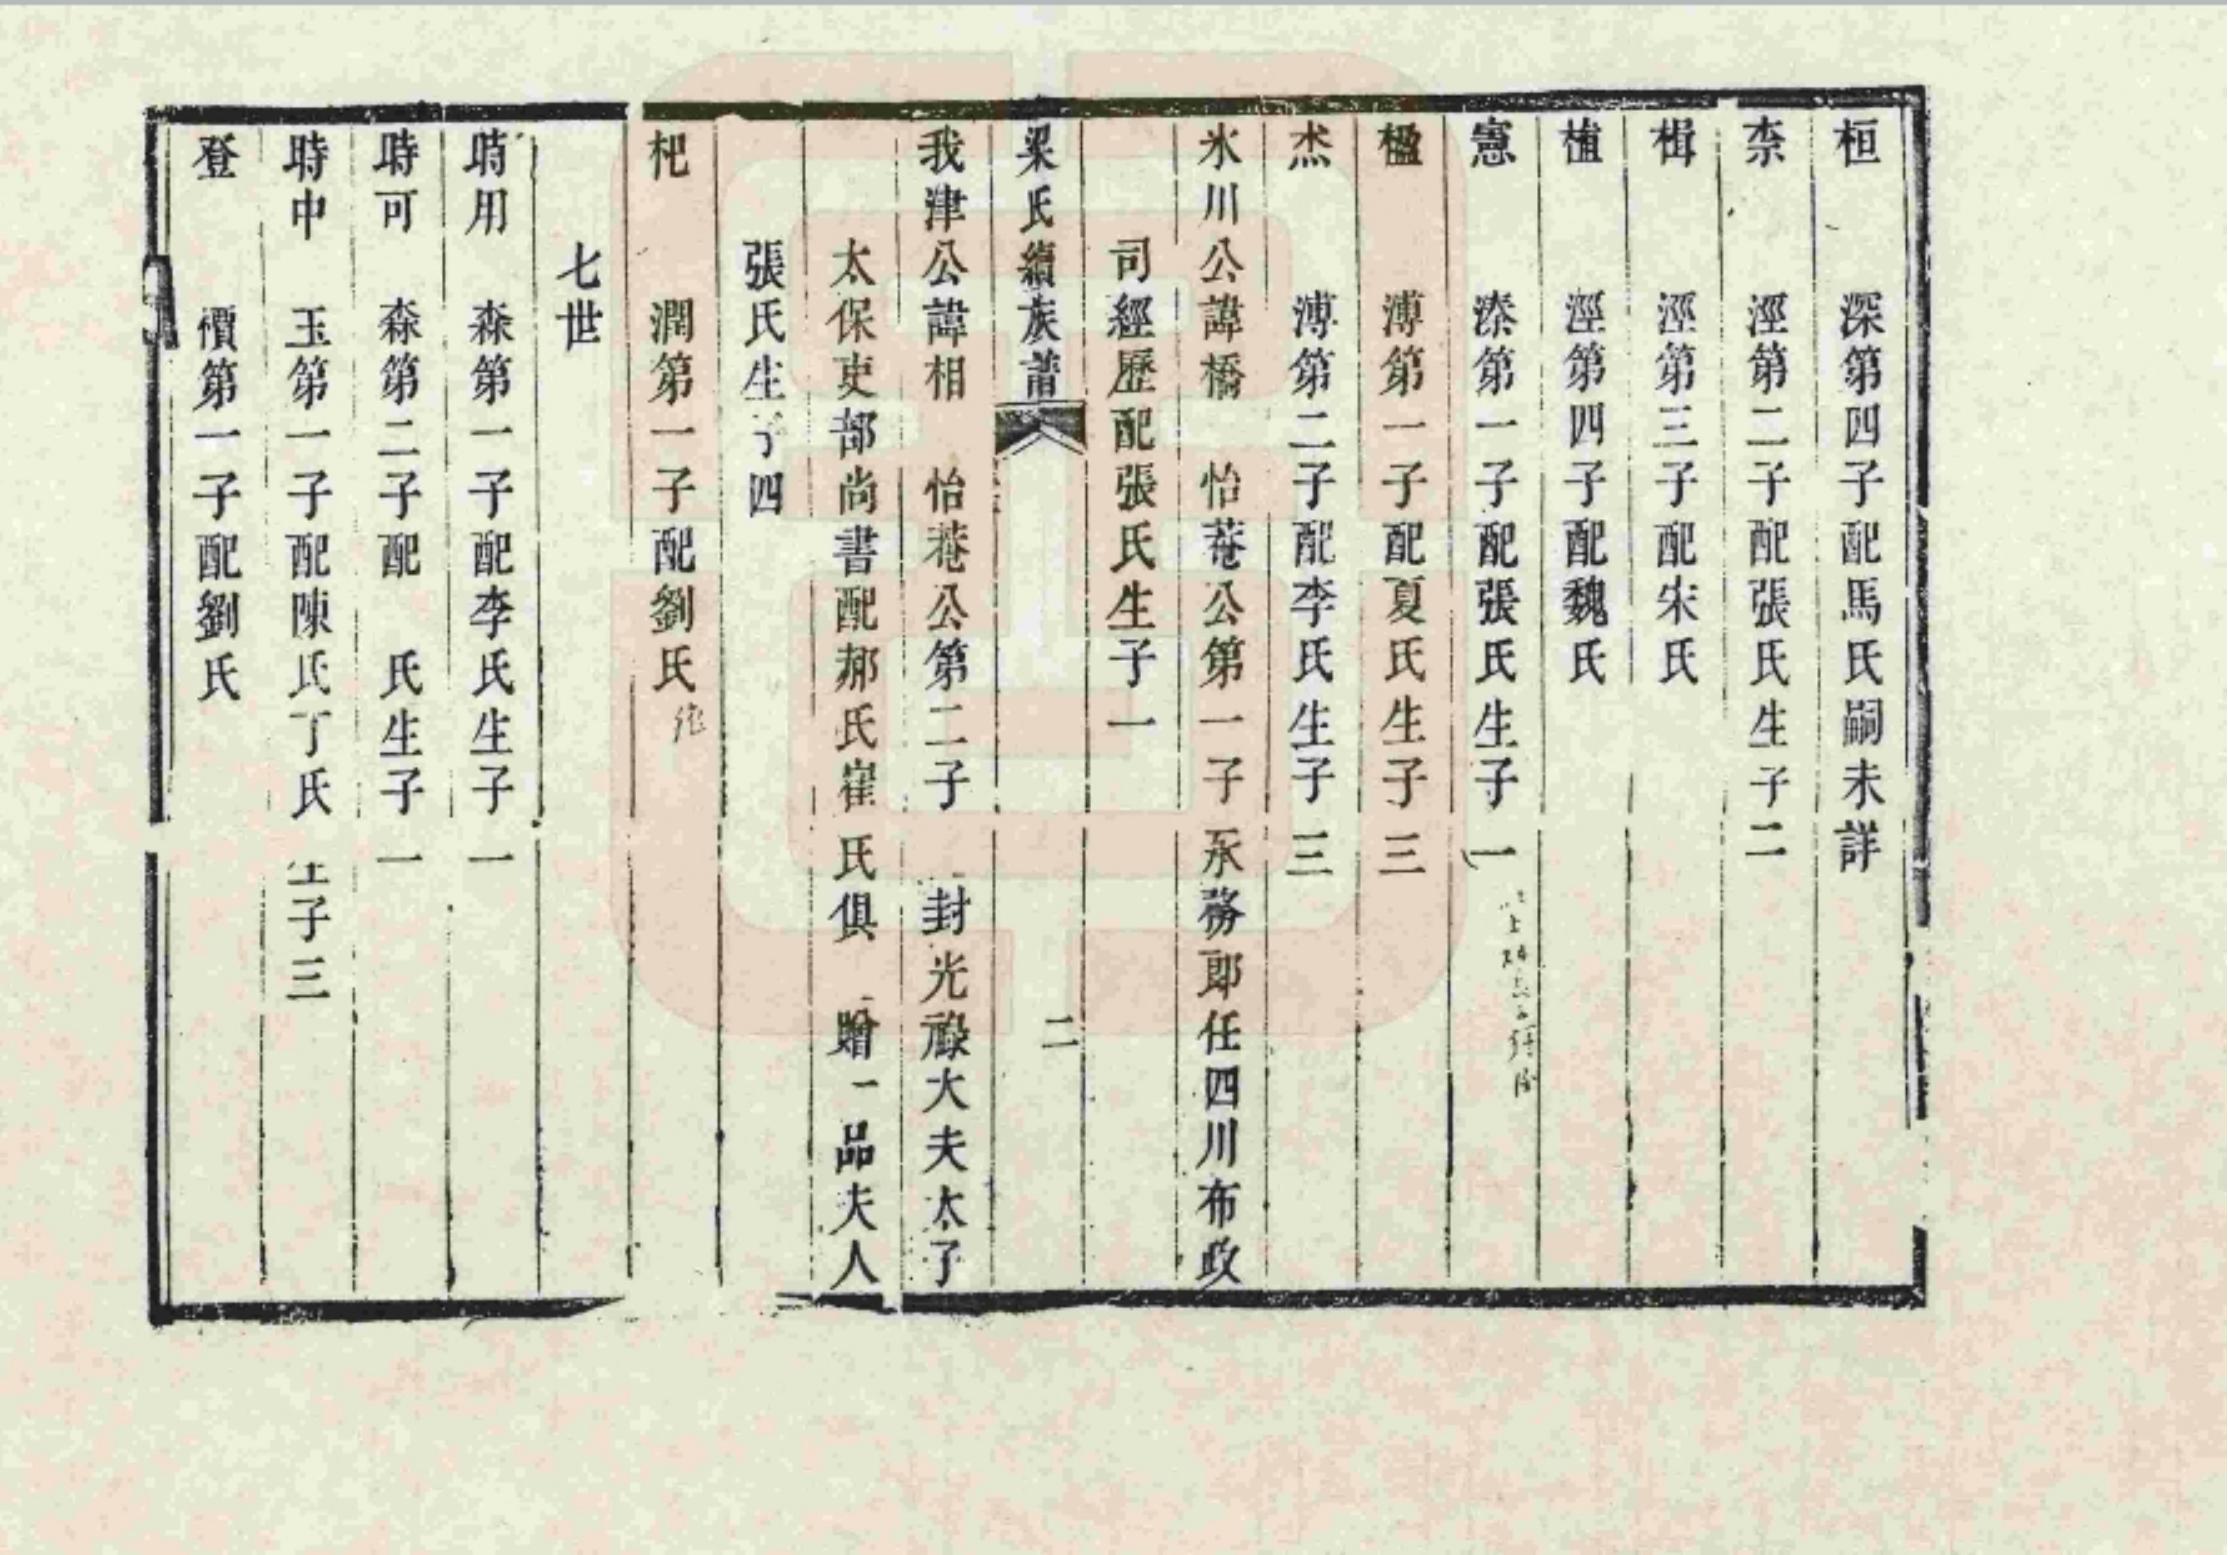 桓 深第四子配馬氏嗣未詳
柰 涇第二子配張氏生子二
楫 涇第三子配宋氏
植 涇第四子配魏氏
憲 溙第一子配張氏生子一
楹 溥第一子配夏氏生子三
杰 溥第二子配李氏生子三
氷川公諱橋 怡菴公第一子承務郎任四川布政
司經歷配張氏生子一
梁氏續族譜 二
我津公諱相 怡菴公第二子 封光祿大夫太子
太保吏部尚書配郝氏崔氏俱 贈一品夫人
張氏生子四
杞 潤第一子配劉氏
七世
時用 森第一子配李氏生子一
時可 森第二子配 氏生子一
時中 玉第一子配陳氏丁氏生子三
登 價第一子配劉氏